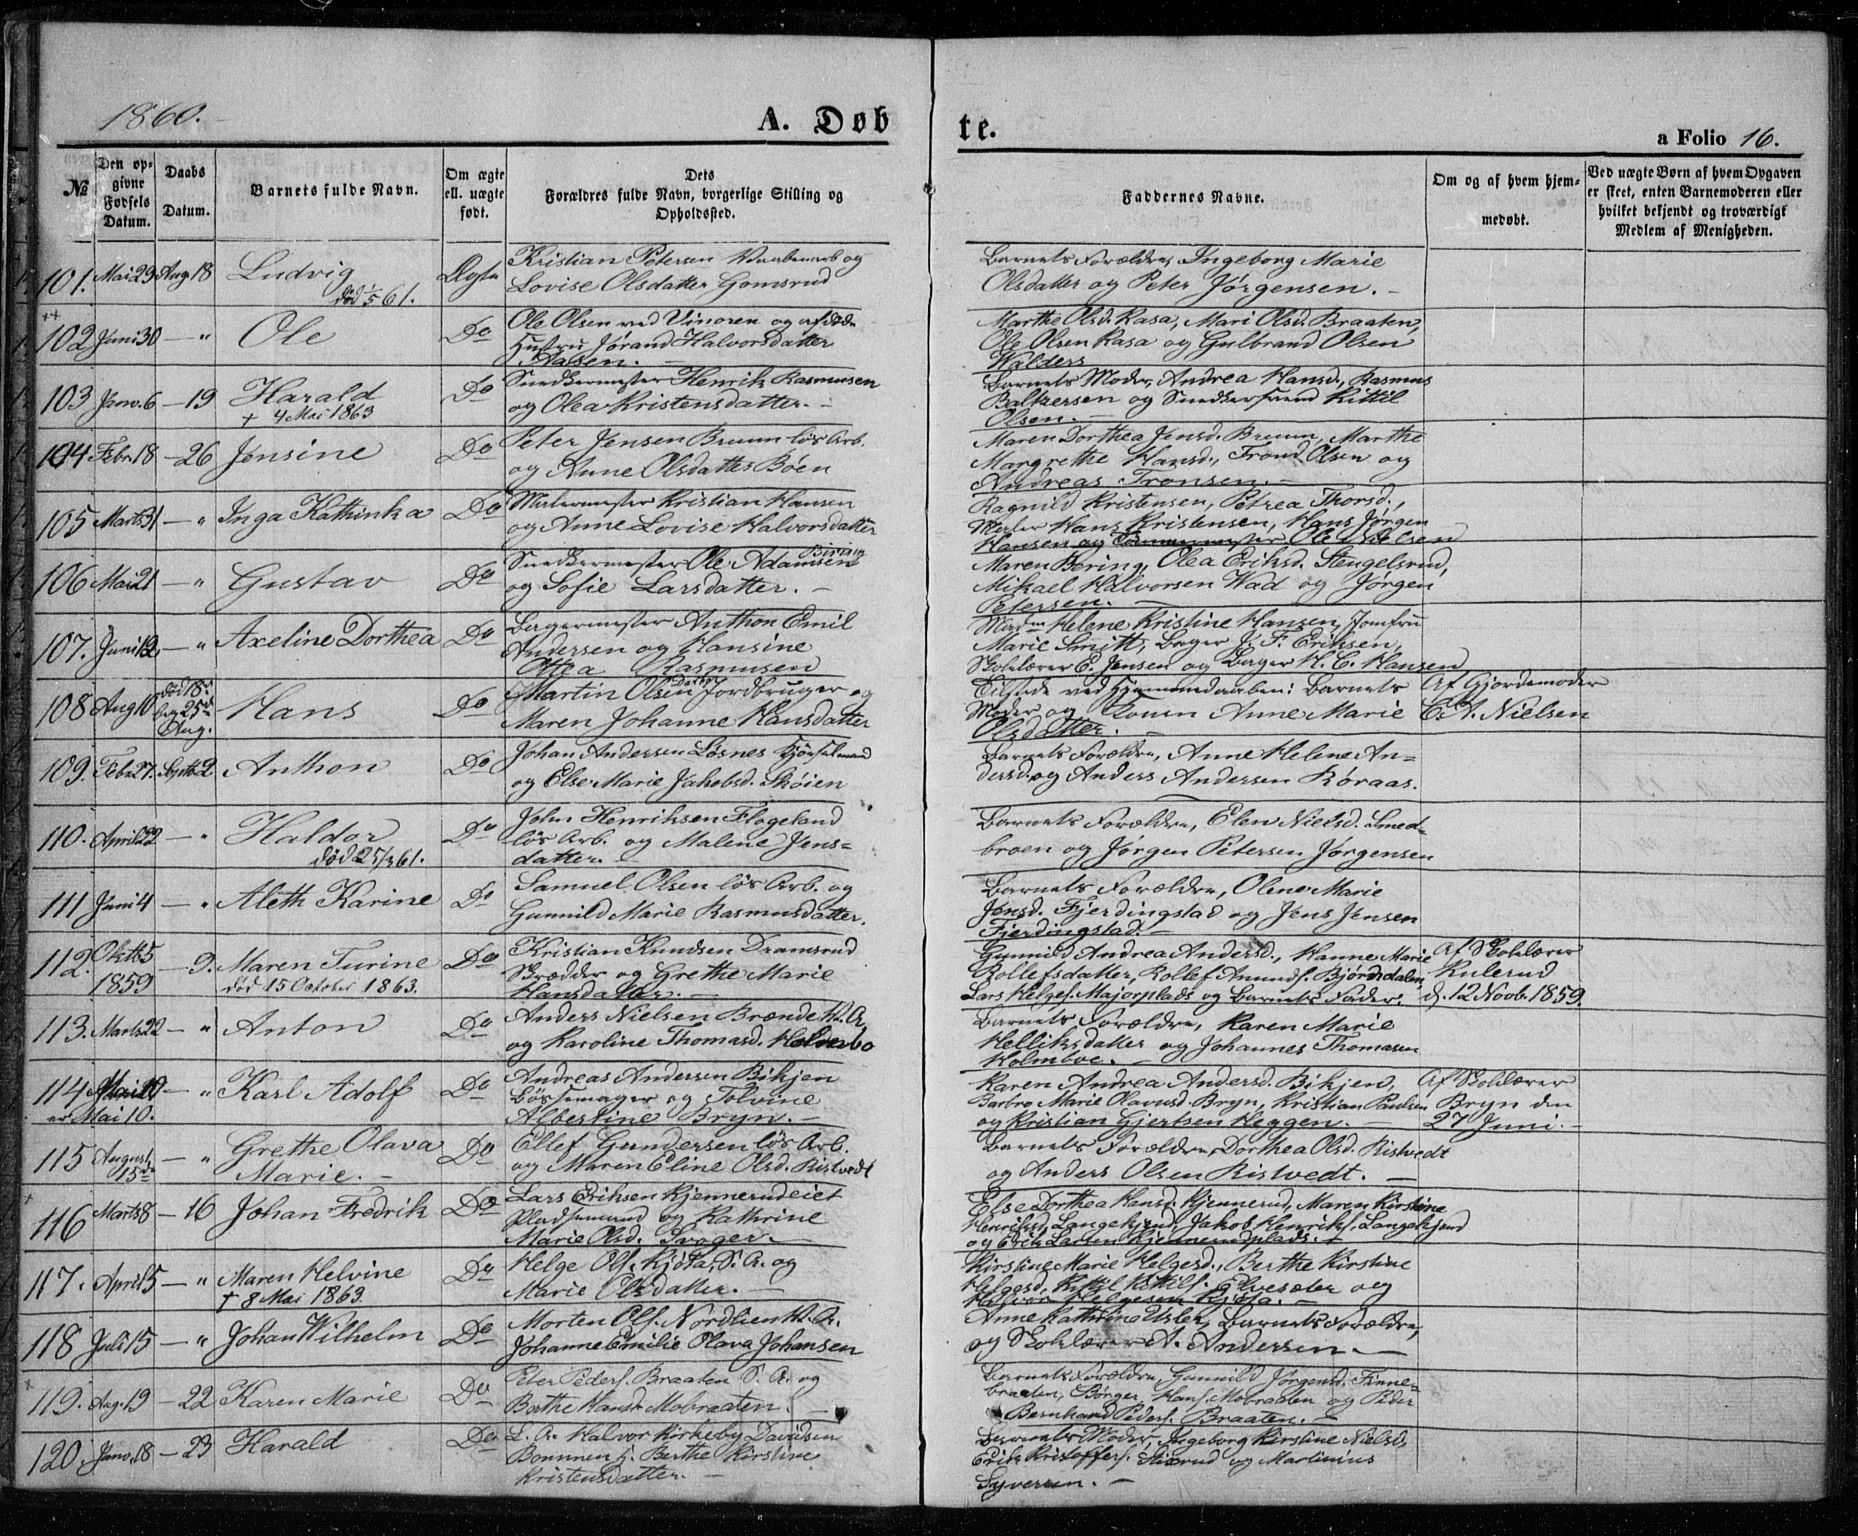 1860.
A. Døbte.
a Folio 16.
№
Den op-
givne
Fødsels
Datum.
Daabs
Datum.
Barnets fulde Navn.
Om ægte
ell. uægte
født.
Dets
Forældres fulde Navn, borgerlige Stilling og
Opholdssted.
Faddernes Navne.
Om og af hvem hjem-
medøbt.
Ved uægte Børn af hvem Opgaven
er skeet, enten Barnemoderen eller
hvilket bekjendt og troværdigt
Medlem af Menigheden.
101. Mai 23 Aug. 18 Ludvig Ægte Kristian Petersen Vaabenarb og
død 1/5 61. Lovise Olsdatter Gomsrud
Barnets Forældre, Ingeborg Marie
Olsdatter og Peter Jørgensen. -
102 Juni 30 - " Ole Do Ole Olsen ved Vinoren og afdøde
Hustru Jørand Halvorsdatter
Marthe Olsd. Rasa, Mari Olsd. Braaten,
Ole Olsen Rasa og Gulbrand Olsen
Walders
103 Janv. 6 - 19 Harald Do Snedkermester Henrik Rasmusen
+ 4 Mai 1863 og Olea Kristensdatter. -
Barnets Moder, Andrea Hansd., Rasmus
Baltzersen og Snedkersvend Kittil
Olsen. -
104 Febr. 18 - 26 Jensine Do Peter Jensen Bruun løs Arb.
og Anne Olsdatter Bøen
Maren Dorthea Jensd. Bruun, Marthe
Margrethe Hansd., Trond Olsen og
Andreas Tronsen. -
105 Marts 31 - " Inga Kathinka Do Malermester Kristian Hansen
og Anne Lovise Halvorsdatter
Ragnild Kristensen, Petrea Thorsd.,
Maler Hans Kristensen, Hans Jørgen
Hansen og Ole Nilsen
106 Mai 21 - " Gustav Do Snedkermester Ole Adamsen Biring
og Sofie Larsdatter. -
Maren Bering, Olea Eriksd. Stengelsrud,
Mikael Halvorsen Wad og Jørgen
Petersen. -
107. Juni 12 - " Axeline Dorthea Do Bagermester Anthon Emil
Andersen og Hansine
Rasmusen
Madm Helene Kristine Hansen, Jomfru
Marie Smitt, Bager J. F. Eriksen,
Skolelærer E. Jensen og Bager H. C. Hansen
108 Aug 10 død 18de beg. 25de Aug. Hans Do Martin Olsen Jordbruger og
Maren Johanne Hansdatter
Tilstede ved Hjemmedaaben: Barnets
Moder og Konen Anne Marie
Olsdatter. -
Af Gjordemoder
C. A. Nielsen
109. Febr. 27. Septb 2 Anthon Do Johan Andersen Løsnes
og Else Marie Jakobsd. Skøien
Barnets Forældre, Anne Helene An-
dersd. og Anders Andersen Røraas.
110. April 22 - " Haldor Do John Henriksen Flogeland
død 25/3 61. løs Arb. og Malene Jens-
datter. -
Barnets Forældre, Elen Nielsd. Smed-
broen og Jørgen Petersen Jørgensen
111 Juni 4 - " Aleth Karine Do Samuel Olsen løs Arb. og
Gunnild Marie Rasmusdatter.
Barnets Forældre, Olene Marie
Jensd. Fjerdingstad og Jens Jensen
Fjerdingstad. -
112. Oktb 5 1859 - 9. Maren Turine Do Kristian Knudsen Dramsrud
død 15 October 1863. Skrædder og Grethe Marie
Hansdatter. -
Gunnild Andrea Andersd., Hanne Marie
Rollefsdatter, Rollef Amunds. Bjørndalen,
Lars Helges. Majorplads og Barnets Fader.
Af Skolelærer
Rulerud
d. 12 Novb. 1859.
113. Marts 22 - " Anton Do Anders Nielsen Brænde K. A.
og Karoline Thomasd. Holmbo
Barnets Forældre, Karen Marie
Helliksdatter og Johannes Thomasen
Holmboe. -
114 - " Karl Adolf Do Andreas Andersen Bikjen
er Mai 10. Bøssemager og Tolvine
Albertine Bryn. -
Karen Andrea Andersd. Bikjen,
Barbro Marie Olavusd. Bryn, Kristian Paulsen
og Kristian Gjertsen Heggen. -
Af Skolelærer
Bryn den
27 Juni. -
115 August 15de - " Grethe Olava Do Ellef Gundersen løs Arb.
Marie. - og Maren Eline Olsd. Ristvedt
Barnets Forældre, Dorthea Olsd. Ristvedt
og Anders Olsen Ristvedt. -
116 Marts 8 - 16 Johan Fredrik Do Lars Eriksen Kjennerudeiet
Pladsemand og Kathrine
Marie Olsd. -
Else Dorthea Hansd. Kjennerud, Maren Kirstine
Henriksd. Langekjend, Jakob Henriks. Langekjend
og Erik Larsen Kjennerudplads. -
117. April 5 - " Maren Helvine Do Helge Ols. Kjøta, S. A. og
+ 8 Mai 1863 Marie Olsdatter. -
Kirstine Marie Helgesd., Berthe Kirstine
Helgesd., Kittil Kittils. Elvesæter og
Halvor Helgesen Kjøta. -
118 Juli 15 - " Johan Wilhelm Do Morten Ols. Nordlien K. A.
Johanne Emilie Olava Johansen
Anne Kathrine Usler, Barnets Forældre,
og Skolelærer A. Andersen. -
119. Aug. 19 - 22 Karen Marie Do Peter Peders. Braaten S. A. og
Berthe Hansd. Mobraaten. -
Barnets Forældre, Gunnild Jørgensd. Finne-
braaten, Børger Hans. Mobraaten og Peder
Bernhard Peders. Braaten. -
120. Janv. 18 - 23 Harald Do L. A. Halvor Kirkeby Davidsen
Bommen h. Berthe Kirstine
Kristensdatter. -
Barnets Moder, Ingeborg Kirstine Nielsd.
Erik Kristoffers. og Martinius
Syversen. -